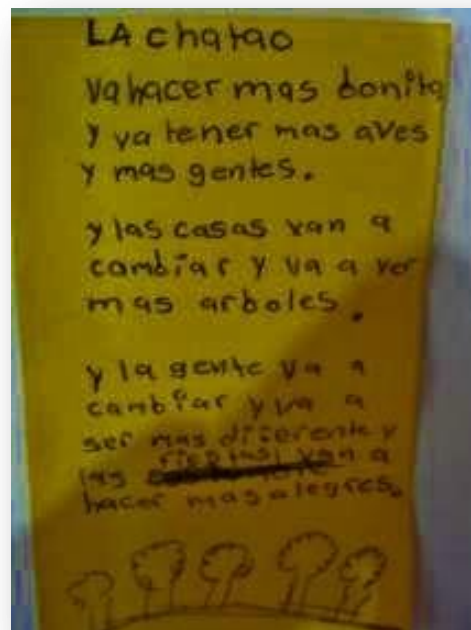 LA chatao
va hacer mas bonita
y va tener mas aves
y mas gentes.
y las casas van a
cambiar y va a ver
mas arboles.
y la gente va a
cambiar y va a
ser mas diferente y
las fiestas van a
hacer mas alegres.